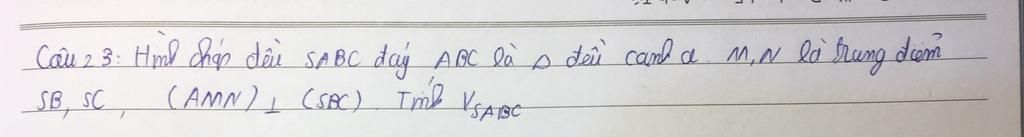 Câu 23: Hình chóp đều SABC đáy ABC là △ đều cạnh a. M, N là trung điểm
SB, SC, (AMN) ⊥ (SBC). Tính V_SABC